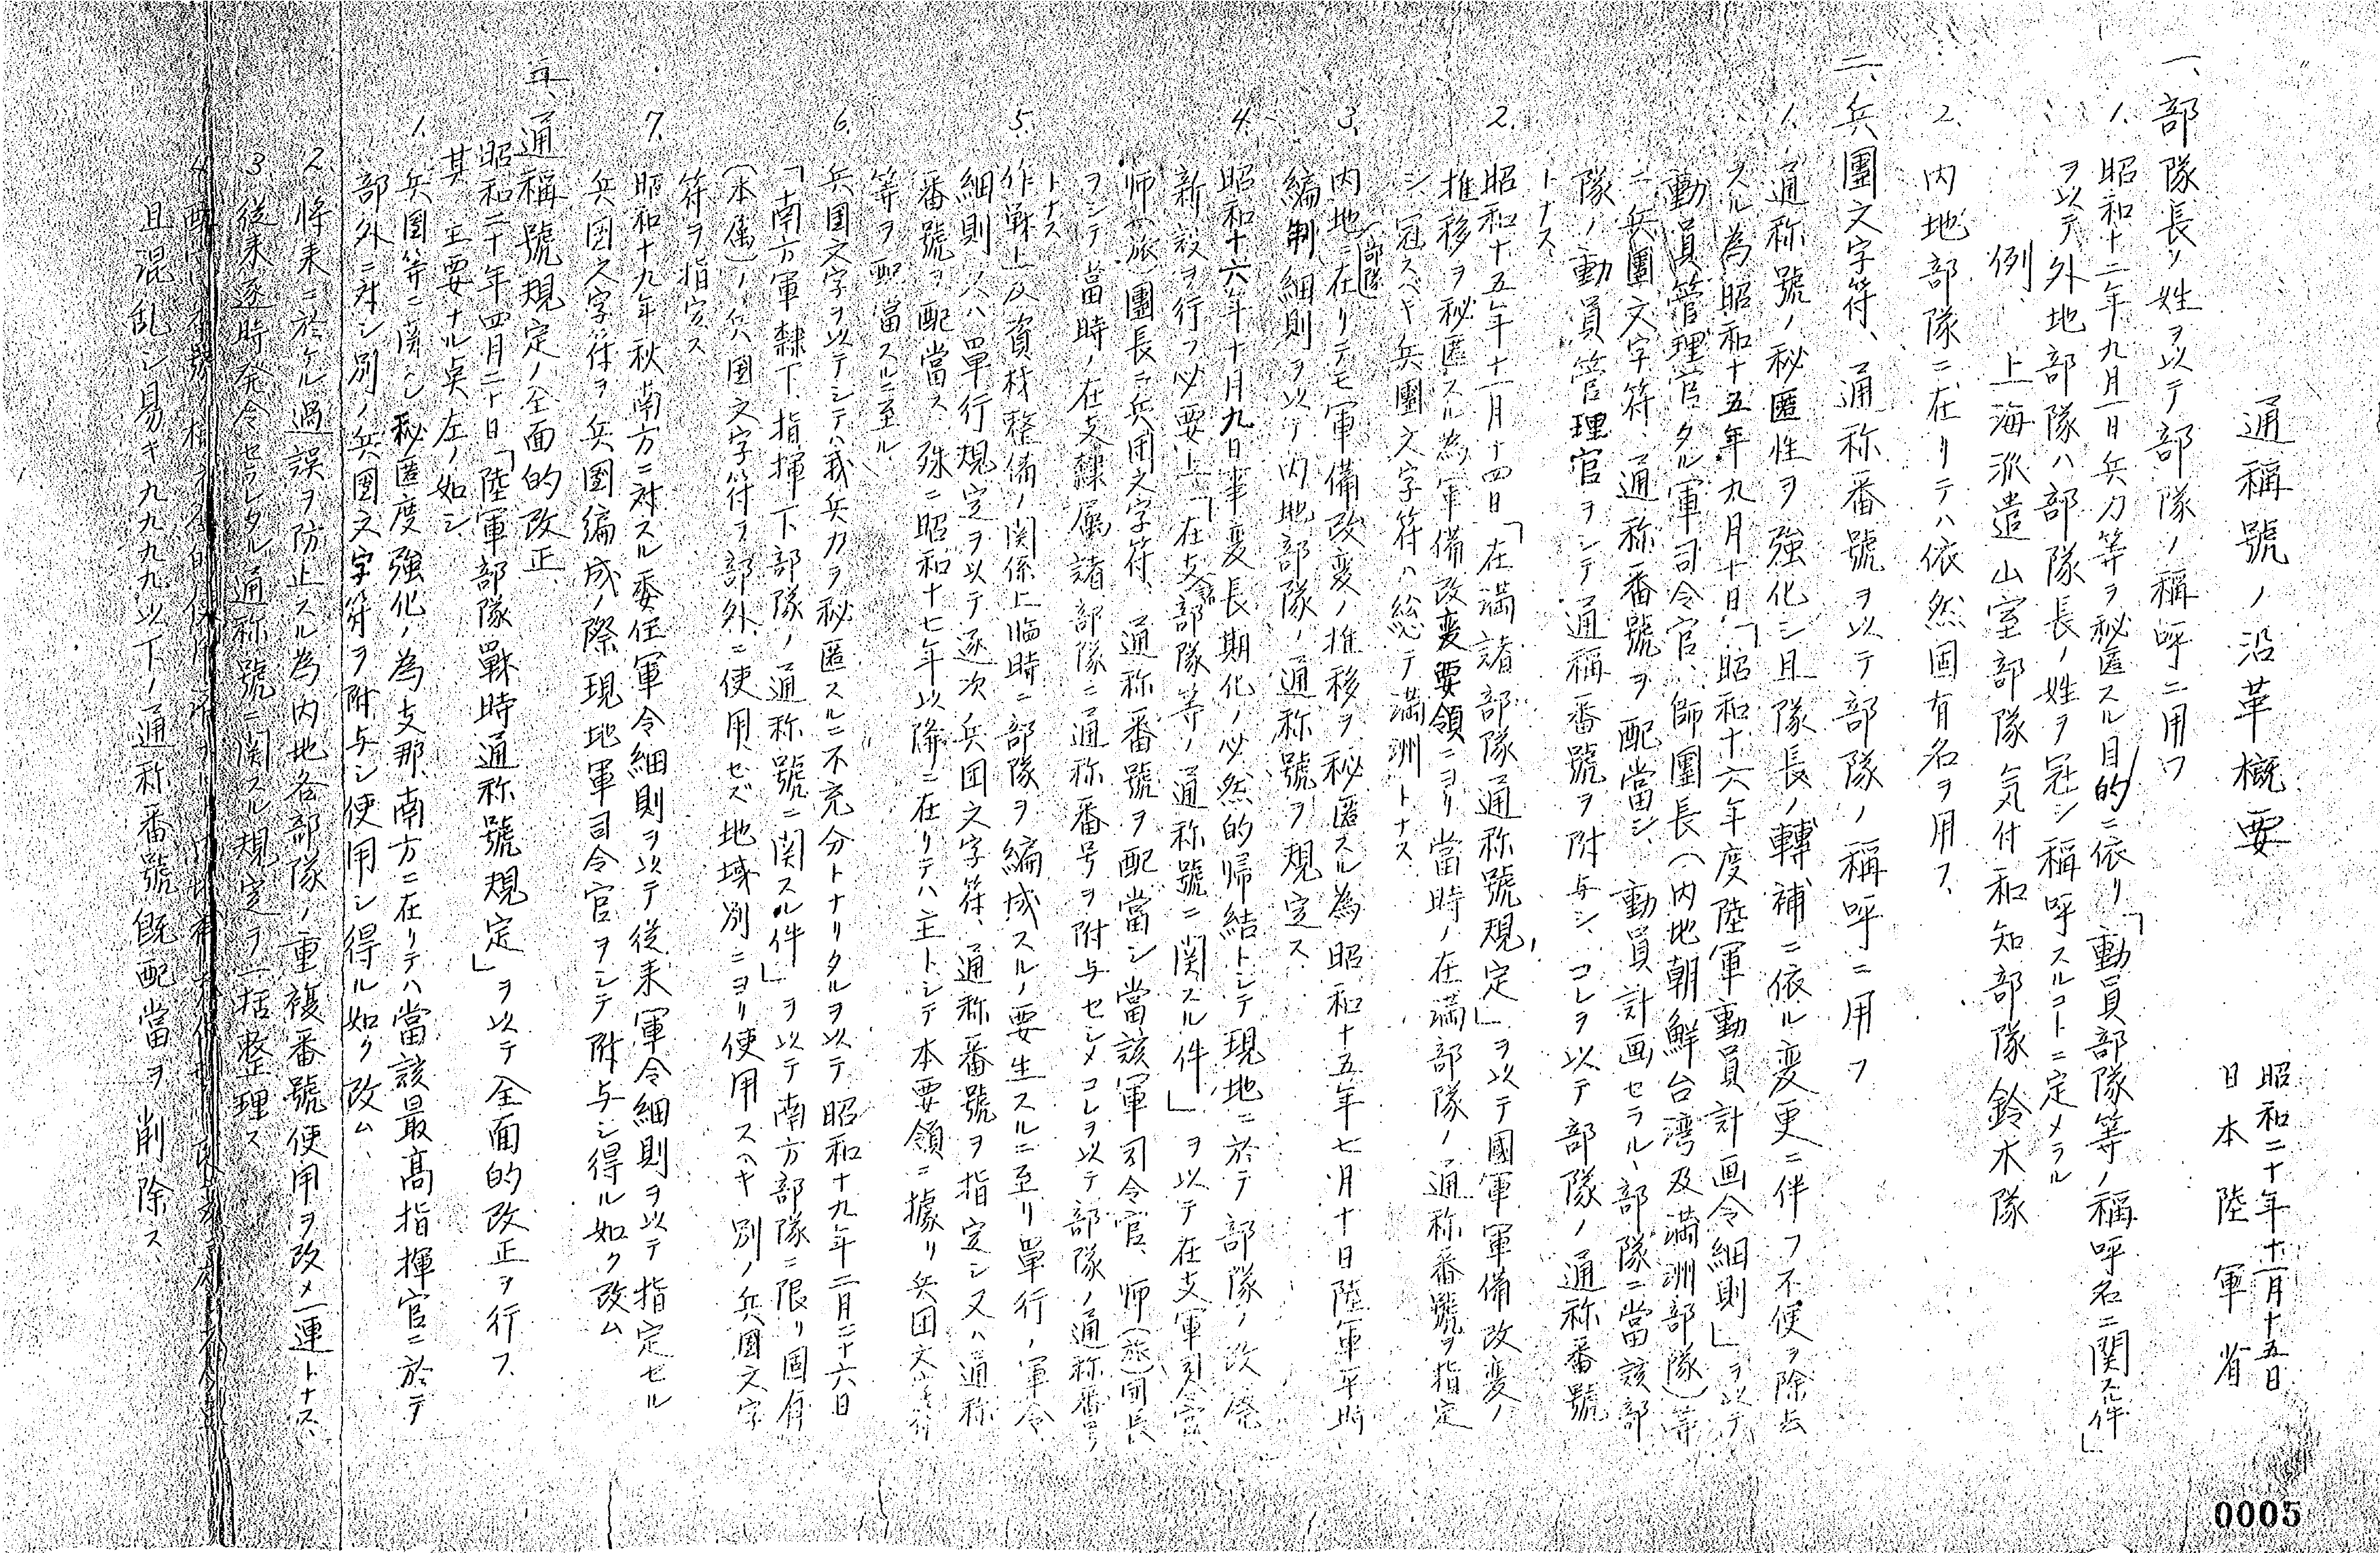 通稱號ノ沿革概要
昭和二十年十一月十五日
日本陸軍省
一、部隊長ノ姓ヲ以テ部隊ノ稱呼ニ用フ
1. 昭和十二年九月一日兵力等ヲ秘匿スル目的ニ依リ「動員部隊等ノ稱呼名ニ関スル件」
ヲ以テ外地部隊ハ部隊長ノ姓ヲ冠シ稱呼スルコトニ定メラル
例、上海派遣山室部隊気付和知部隊鈴木隊
2、内地部隊ニ在リテハ依然固有名ヲ用フ、
二、兵團文字符、通称番號ヲ以テ部隊ノ稱呼ニ用フ
1. 通称號ノ秘匿性ヲ強化シ且隊長ノ轉補ニ依ル変更ニ伴フ不便ヲ除去
スル為昭和十五年九月十日「昭和十六年度陸軍動員計画令細則」ヲ以テ
動員管理官タル軍司令官、師團長(内地朝鮮台湾及満洲部隊)等
ニ兵團文字符、通称番號ヲ配當シ、動員計画セラル、部隊ニ當該部
隊ノ動員管理官ヲシテ通稱番號ヲ附与シ、コレヲ以テ部隊ノ通称番號
トナス、
2. 昭和十五年十一月十四日「在満諸部隊通称號規定」ヲ以テ國軍軍備改変ノ
推移ヲ秘匿スル為軍備改変要領ニヨリ當時ノ在満部隊ノ通称番號ヲ指定
シ冠スベキ兵團文字符ハ総テ満洲トナス
3. 内地部隊ニ在リテモ軍備改変ノ推移ヲ秘匿スル為昭和十五年七月十日陸軍平時
編制細則ヲ以テ内地部隊ノ通称號ヲ規定ス
4. 昭和十六年十月九日事変長期化ノ必然的帰結トシテ現地ニ於テ部隊ノ改廃
新設ヲ行フ必要上「在支諸部隊等ノ通称號ニ関スル件」ヲ以テ在支軍司令官、
師(旅)團長ニ兵団文字符、通称番號ヲ配當シ當該軍司令官、師(旅)団長
ヲシテ當時ノ在支隷属諸部隊ニ通称番号ヲ附与セシメコレヲ以テ部隊ノ通称番号
トナス
5. 作戦上及資材整備ノ関係上臨時ニ部隊ヲ編成スルノ要生スルニ至リ單行ノ軍令
細則又ハ單行規定ヲ以テ逐次兵団文字符、通称番號ヲ指定シ又ハ通称
番號ヲ配當ス 殊ニ昭和十七年以降ニ在リテハ主トシテ本要領ニ據リ兵団文字符
等ヲ配當スルニ至ル
6. 兵団文字ヲ以テシテハ我兵力ヲ秘匿スルニ不充分トナリタルヲ以テ昭和十九年二月二十六日
「南方軍隷下指揮下部隊ノ通称號ニ関スル件」ヲ以テ南方部隊ニ限リ固有
(本属)ノ兵団文字符ヲ部外ニ使用セズ地域別ニヨリ使用スヘキ別ノ兵團文字
符ヲ指定ス
7. 昭和十九年秋南方ニ対スル委任軍令細則ヲ以テ従来軍令細則ヲ以テ指定セル
兵団文字符ヲ兵團編成ノ際現地軍司令官ヲシテ附与シ得ル如ク改ム
三、通稱號規定ノ全面的改正
昭和二十年四月二十日「陸軍部隊戰時通称號規定」ヲ以テ全面的改正ヲ行フ
其主要ナル点左ノ如シ
1. 兵團等ニ関シ秘匿度強化ノ為支那、南方ニ在リテハ當該最高指揮官ニ於テ
部外ニ対シ別ノ兵團文字符ヲ附与シ使用シ得ル如ク改ム、
2. 将来ニ於ケル過誤ヲ防止スル為内地各部隊ノ重複番號使用ヲ改メ一連トナス、
3. 従来逐時発令セラレタル通称號ニ関スル規定ヲ一括整理ス
4.
且混乱シ易キ九九九九以下ノ通称番號既配當ヲ削除ス、
0005